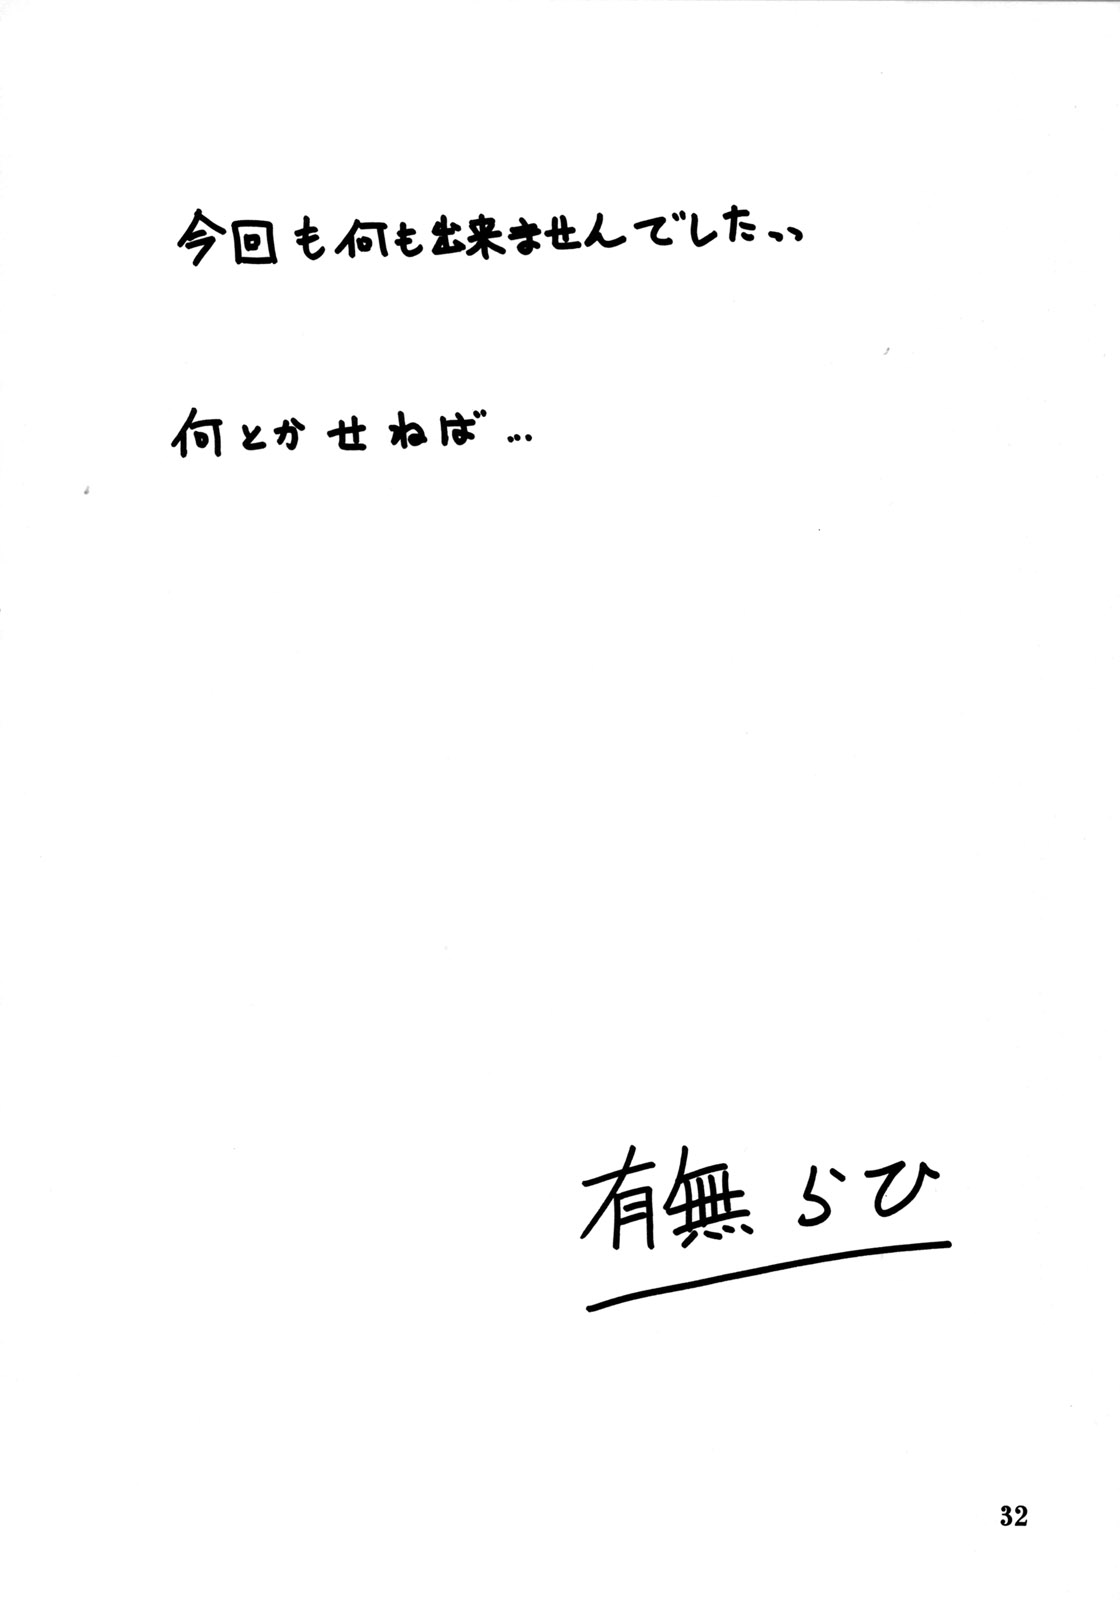 今回も何も出来ませんでしたっっ
何とかせねば...
有無らひ
32